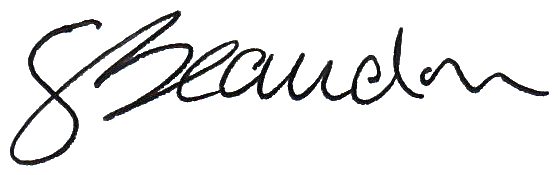 S Beaudon